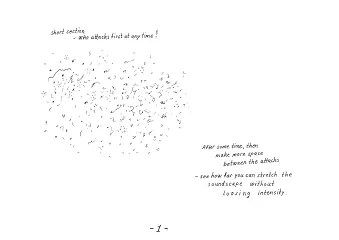 short section
- who attacks first at any time?
After some time, then
make more space
between the attacks
- see how far you can stretch the
soundscape without
loosing intensity
- 1 -